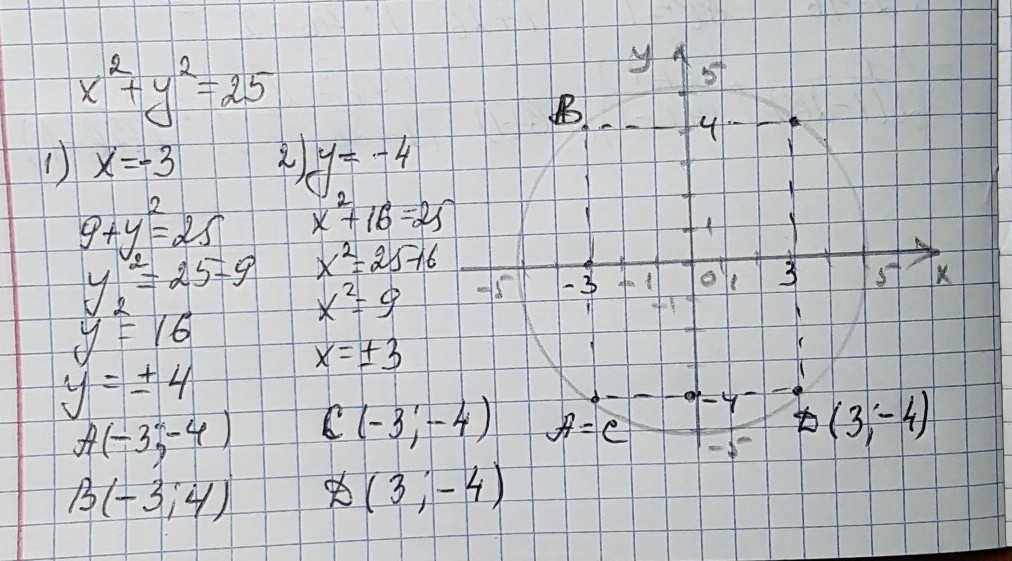 x²+y²=25
1) x=-3
9+y²=25
y²=25-9
y²=16
y=±4
A(-3;-4)
B(-3;4)
2) y=-4
x²+16=25
x²=25-16
x²=9
x=±3
C(-3;-4)
D(3;-4)
y
5
B
4
1
-5
-3
-1
0
1
3
5
x
-1
-4
A=C
D(3;-4)
-5